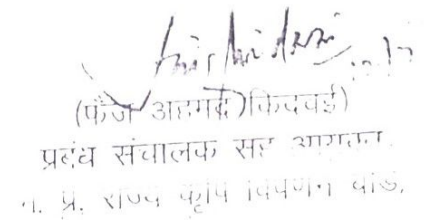 (फैज अहमद किदवई)
प्रबंध संचालक सह आयुक्त
म. प्र. राज्य कृषि विपणन बोर्ड,